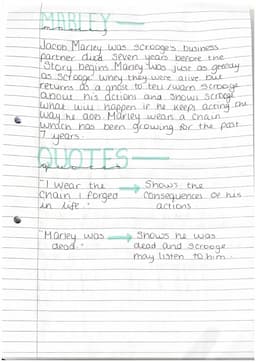 MARLEY
Jacob Marley was scrooge's business
partner died seven years before the
story begins Marley was just as greedy
as scrooge whey they were alive but
returns as a ghost to tell/warn scrooge
about his actions and shows scrooge
what will happen if he keeps acting the
way he does. Marley wears a chain
which has been growing for the past
7 years.
QUOTES
"I wear the → Shows the
chain I forged consequences of his
in life." actions
"Marley was → Shows he was
dead." dead and scrooge
may listen to him.